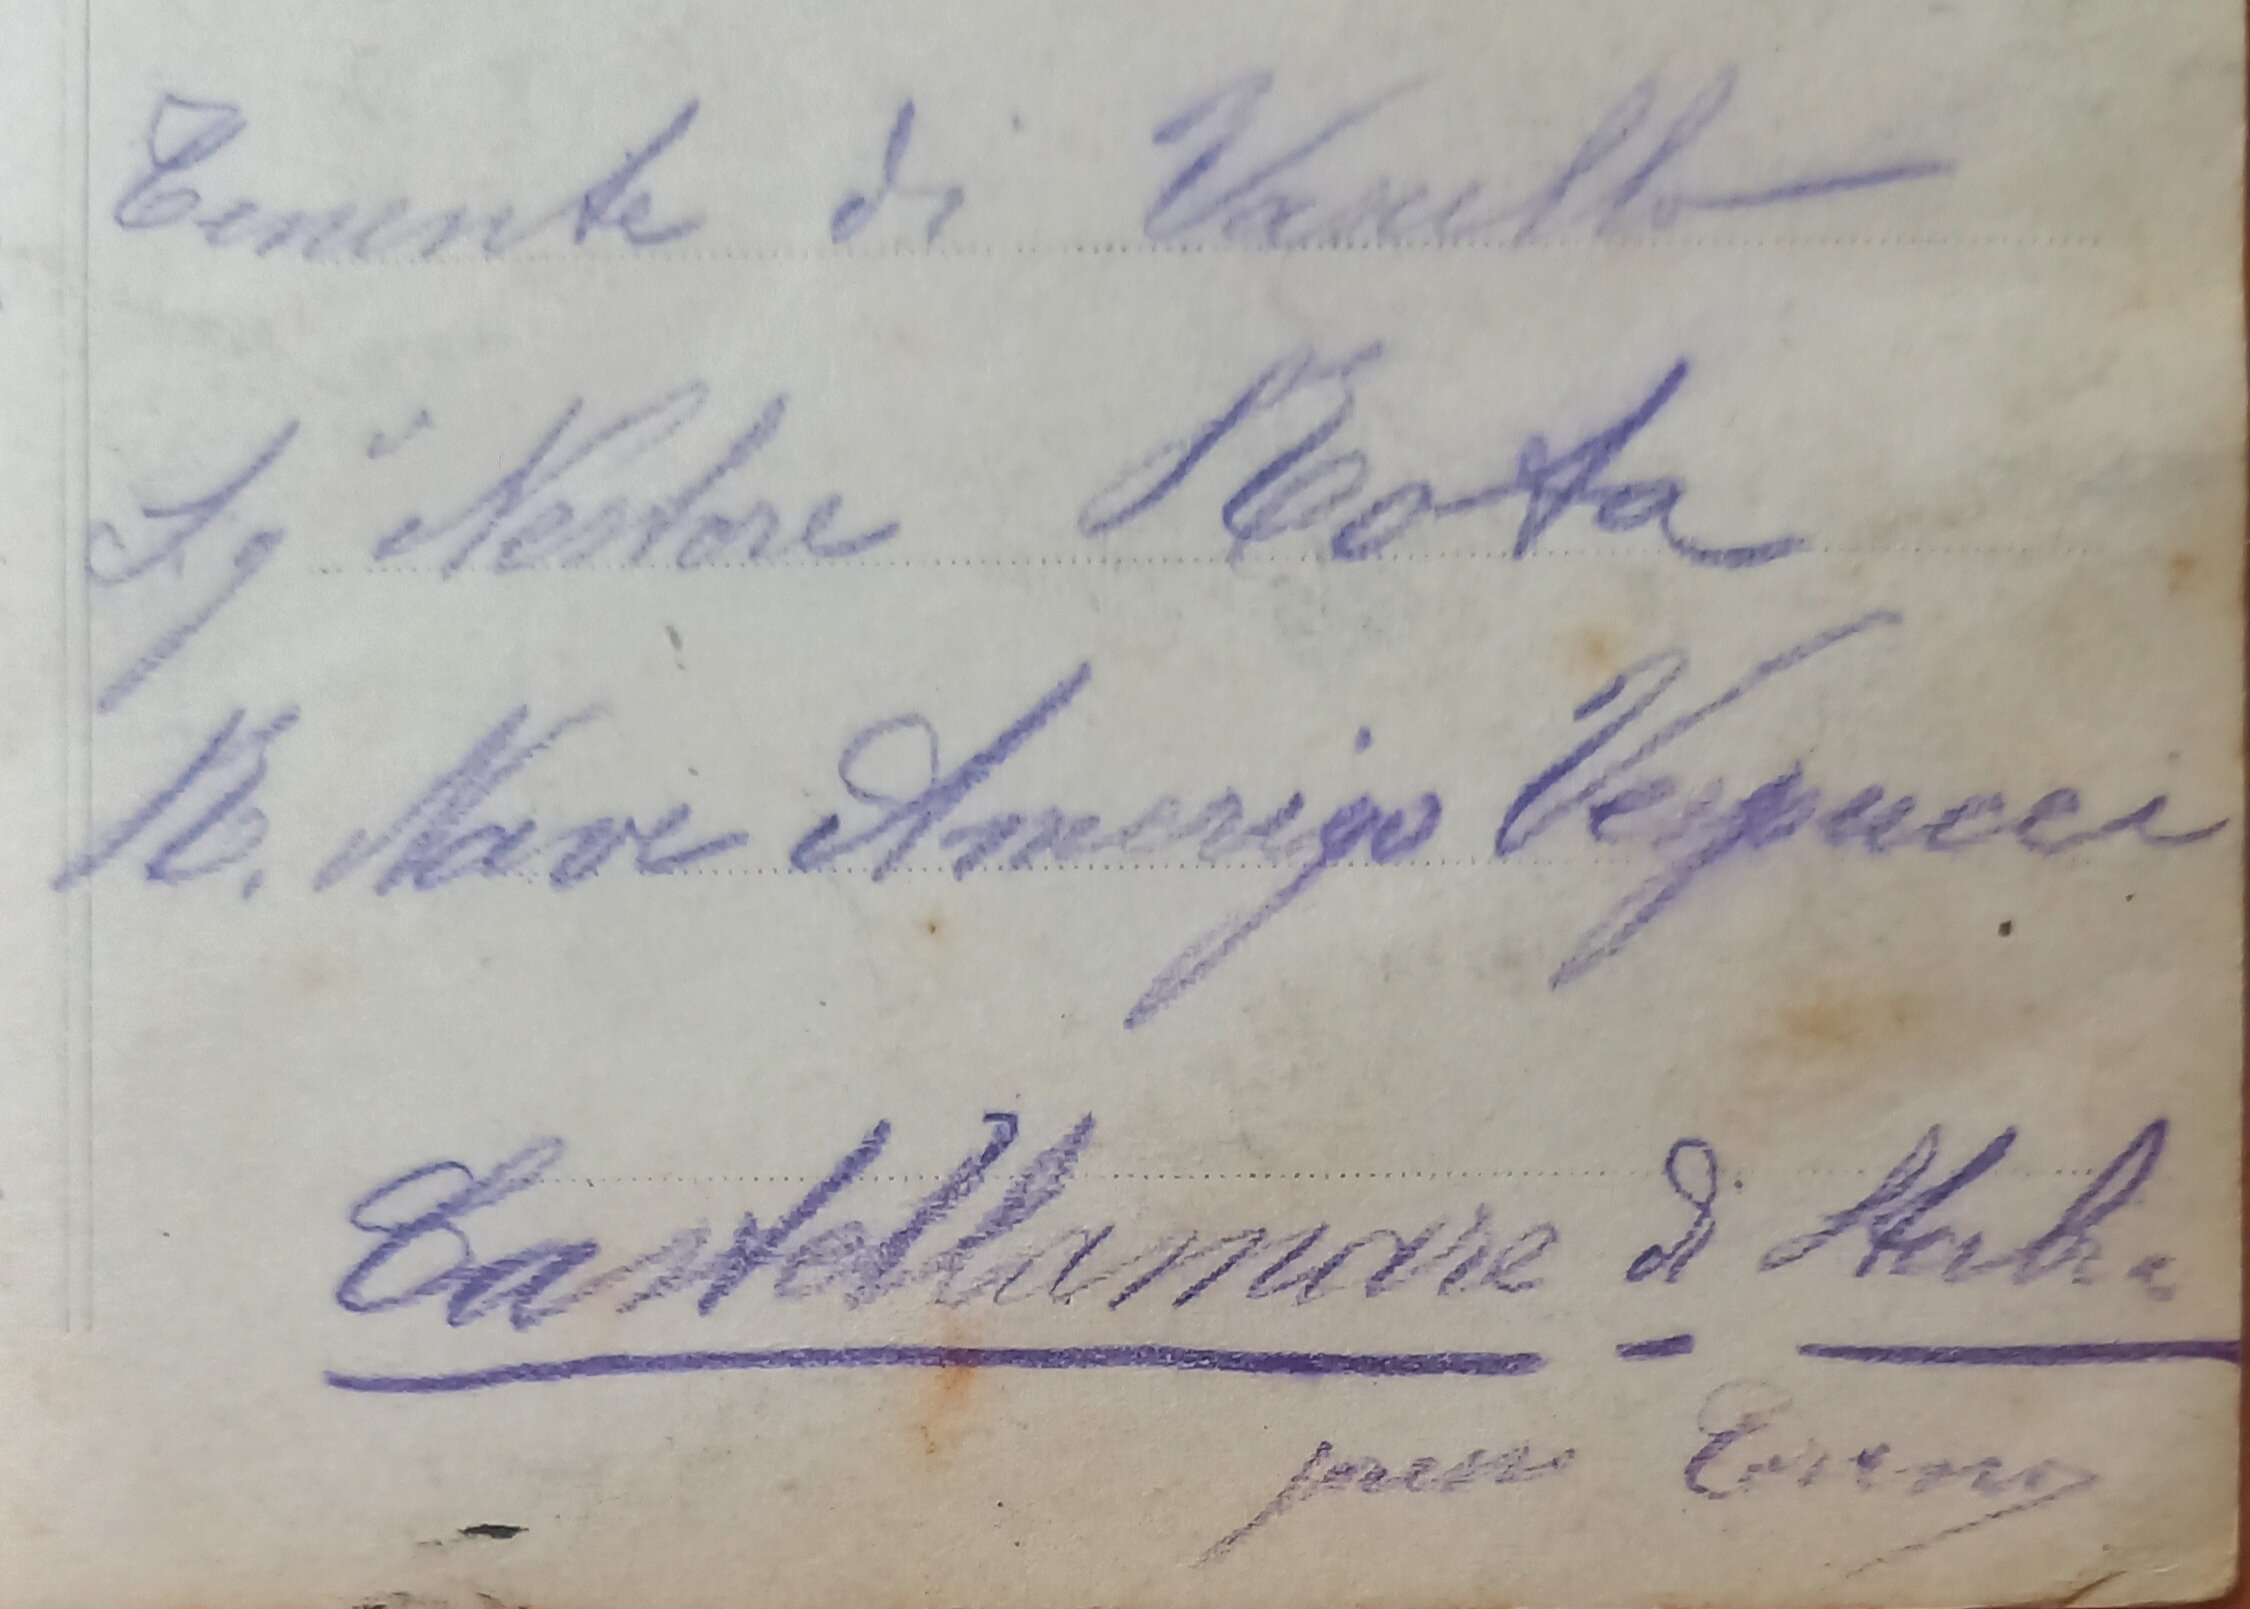 Tenente di Vascello
Sg Nestore Rota
R. Nave Amerigo Vespucci
Castellamare di Stabia